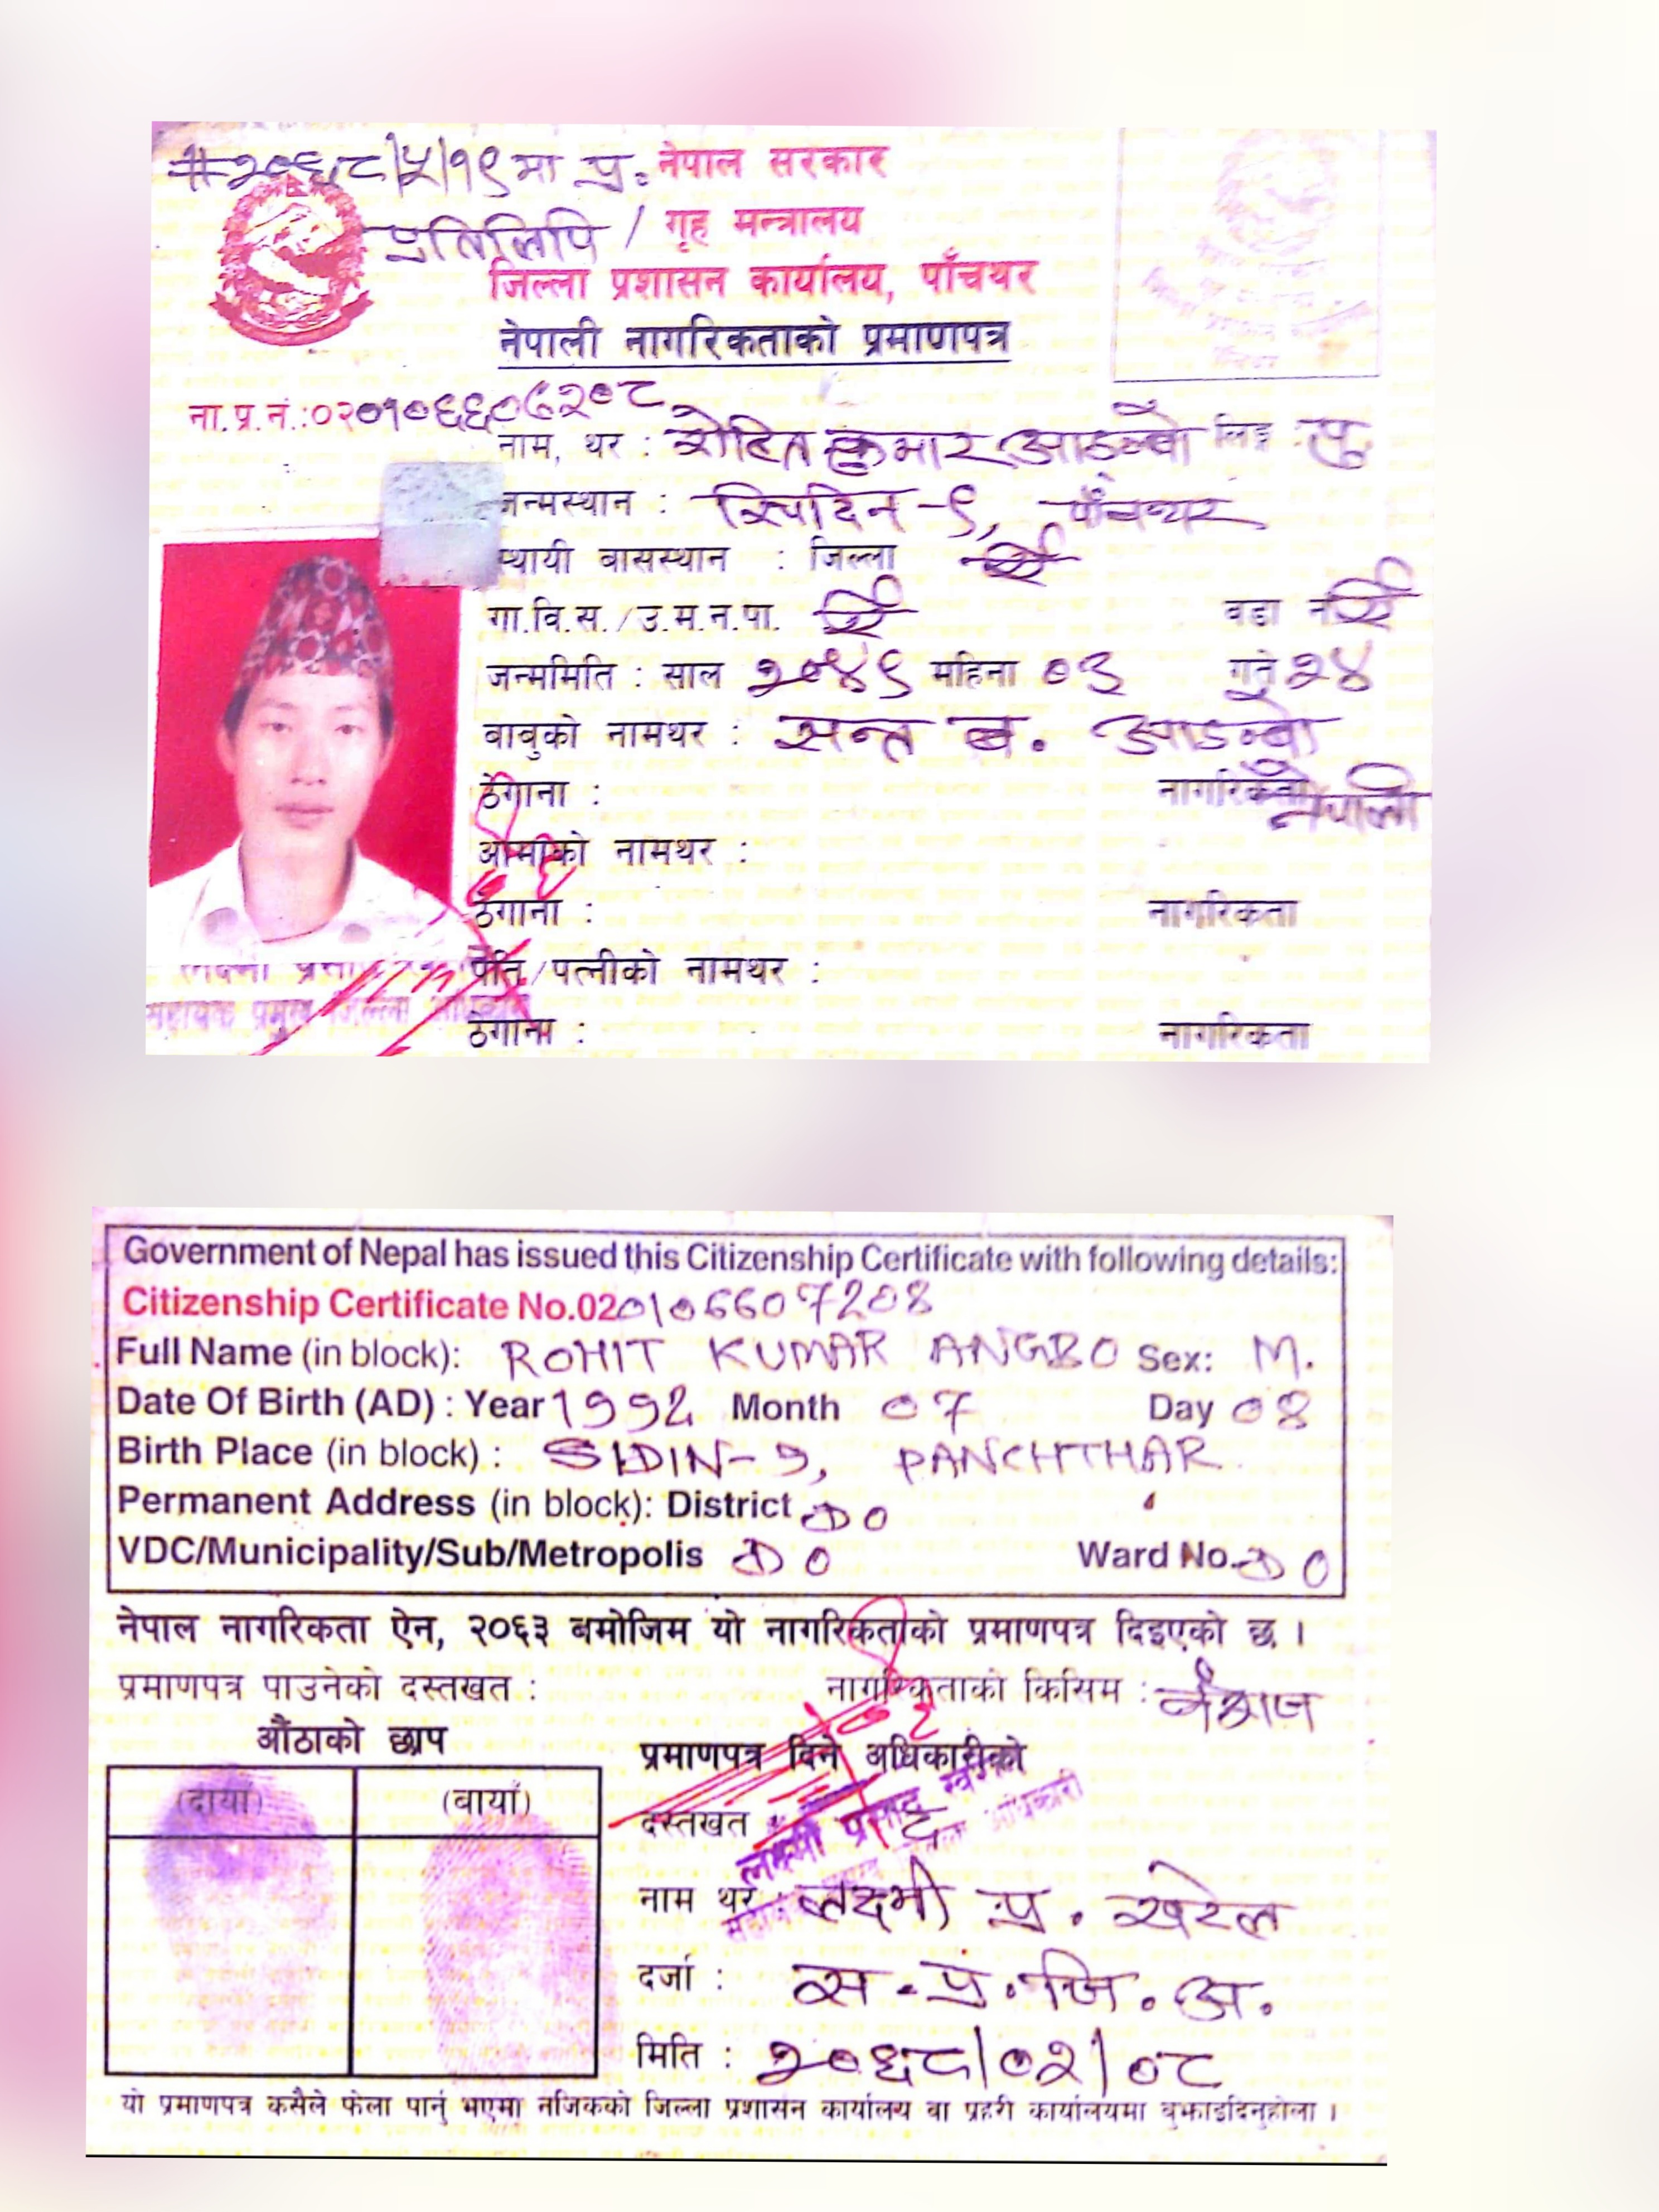 #२०६८|५|१९ मा प्र. नेपाल सरकार
प्रतिलिपि / गृह मन्त्रालय
जिल्ला प्रशासन कार्यालय, पाँचथर
नेपाली नागरिकताको प्रमाणपत्र
ना.प्र.नं.:०२०१०६६०७२०८
नाम, थर : रोहित कुमार आङ्बो लिङ्ग : पु.
जन्मस्थान : सिदिन -९, पाँचथर
स्थायी बासस्थान : जिल्ला ऐ ऐ
गा.वि.स./उ.म.न.पा. ऐ ऐ वडा नं ऐ ऐ
जन्ममिति : साल २०४९ महिना ०३ गते २४
बाबुको नामथर : सन्त ब. आङ्बो
ठेगाना : नागरिकता नेपाली
आमाको नामथर :
ठेगाना : नागरिकता
पति/पत्नीको नामथर :
सहायक प्रमुख जिल्ला अधिकारी
ठेगाना : नागरिकता
Government of Nepal has issued this Citizenship Certificate with following details:
Citizenship Certificate No.020106607208
Full Name (in block): ROHIT KUMAR ANGBO Sex: M.
Date Of Birth (AD) : Year 1992 Month 07 Day 08
Birth Place (in block) : SIDIN-9, PANCHTHAR
Permanent Address (in block): District DO
VDC/Municipality/Sub/Metropolis DO Ward No. DO
नेपाल नागरिकता ऐन, २०६३ बमोजिम यो नागरिकताको प्रमाणपत्र दिइएको छ ।
प्रमाणपत्र पाउनेको दस्तखत : नागरिकताको किसिम : वंशज
औंठाको छाप
प्रमाणपत्र दिने अधिकारीको
(दायाँ) (बायाँ)
दस्तखत :
लक्ष्मी प्रसाद
नाम थर : लक्ष्मी प्र. खरेल
दर्जा : स.प्र.जि.अ.
मिति : २०६८|०२|०८
यो प्रमाणपत्र कसैले फेला पार्नु भएमा नजिकको जिल्ला प्रशासन कार्यालय वा प्रहरी कार्यालयमा बुझाइदिनुहोला ।